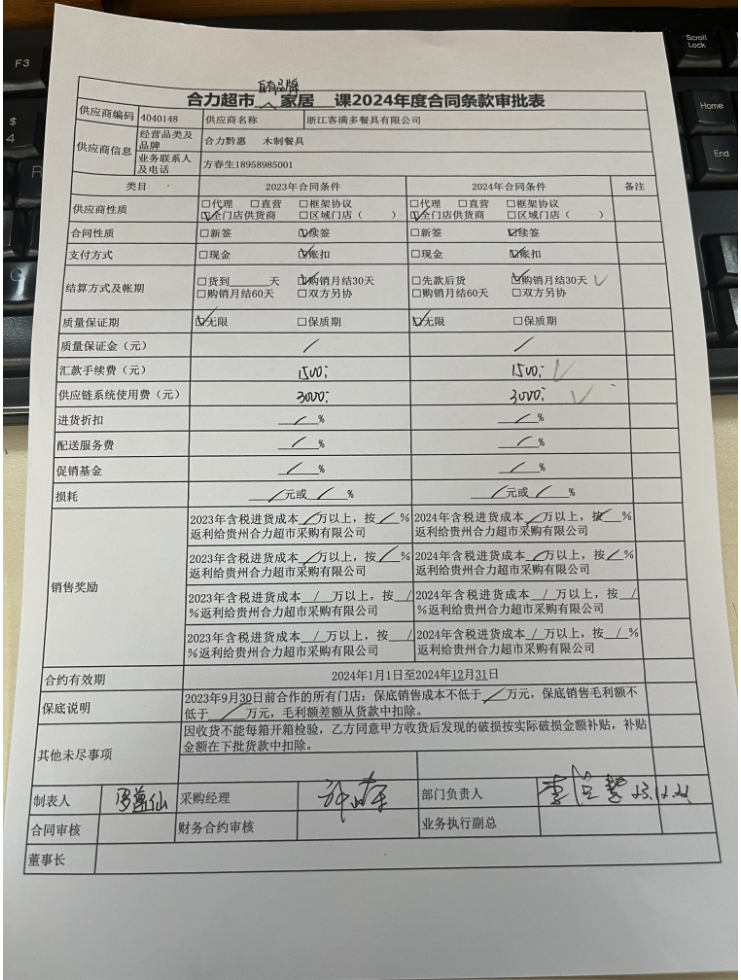 自有品牌
合力超市 家居 课2024年度合同条款审批表
供应商编码 4040148 供应商名称 浙江客满多餐具有限公司
供应商信息 经营品类及品牌 合力黔惠 木制餐具
业务联系人及电话 方春生18958985001
类目 2023年合同条件 2024年合同条件 备注
供应商性质 □代理 □直营 □框架协议 □代理 □直营 □框架协议
☑全门店供货商 □区域门店（ ） ☑全门店供货商 □区域门店（ ）
合同性质 □新签 ☑续签 □新签 ☑续签
支付方式 □现金 ☑账扣 □现金 ☑账扣
结算方式及账期 □货到____天 ☑购销月结30天 □先款后货 ☑购销月结30天 ✓
□购销月结60天 □双方另协 □购销月结60天 □双方另协
质量保证期 ☑无限 □保质期 ☑无限 □保质期
质量保证金（元） / /
汇款手续费（元） 1500; 1500; ✓
供应链系统使用费（元） 3000; 3000; ✓
进货折扣 / % / %
配送服务费 / % / %
促销基金 / % / %
损耗 / 元或 / % / 元或 / %
销售奖励
2023年含税进货成本 / 万以上，按 / % 2024年含税进货成本 / 万以上，按 / %
返利给贵州合力超市采购有限公司 返利给贵州合力超市采购有限公司
2023年含税进货成本 / 万以上，按 / % 2024年含税进货成本 / 万以上，按 / %
返利给贵州合力超市采购有限公司 返利给贵州合力超市采购有限公司
2023年含税进货成本 / 万以上，按 / 2024年含税进货成本 / 万以上，按 /
%返利给贵州合力超市采购有限公司 %返利给贵州合力超市采购有限公司
2023年含税进货成本 / 万以上，按 / 2024年含税进货成本 / 万以上，按 / %
%返利给贵州合力超市采购有限公司 返利给贵州合力超市采购有限公司
合约有效期 2024年1月1日至2024年12月31日
保底说明 2023年9月30日前合作的所有门店：保底销售成本不低于 / 万元，保底销售毛利额不
低于 / 万元，毛利额差额从货款中扣除。
其他未尽事项 因收货不能每箱开箱检验，乙方同意甲方收货后发现的破损按实际破损金额补贴，补贴
金额在下批货款中扣除。
制表人 采购经理 部门负责人
合同审核 财务合约审核 业务执行副总
董事长
F3
$
4
R
Scroll
Lock
Home
End